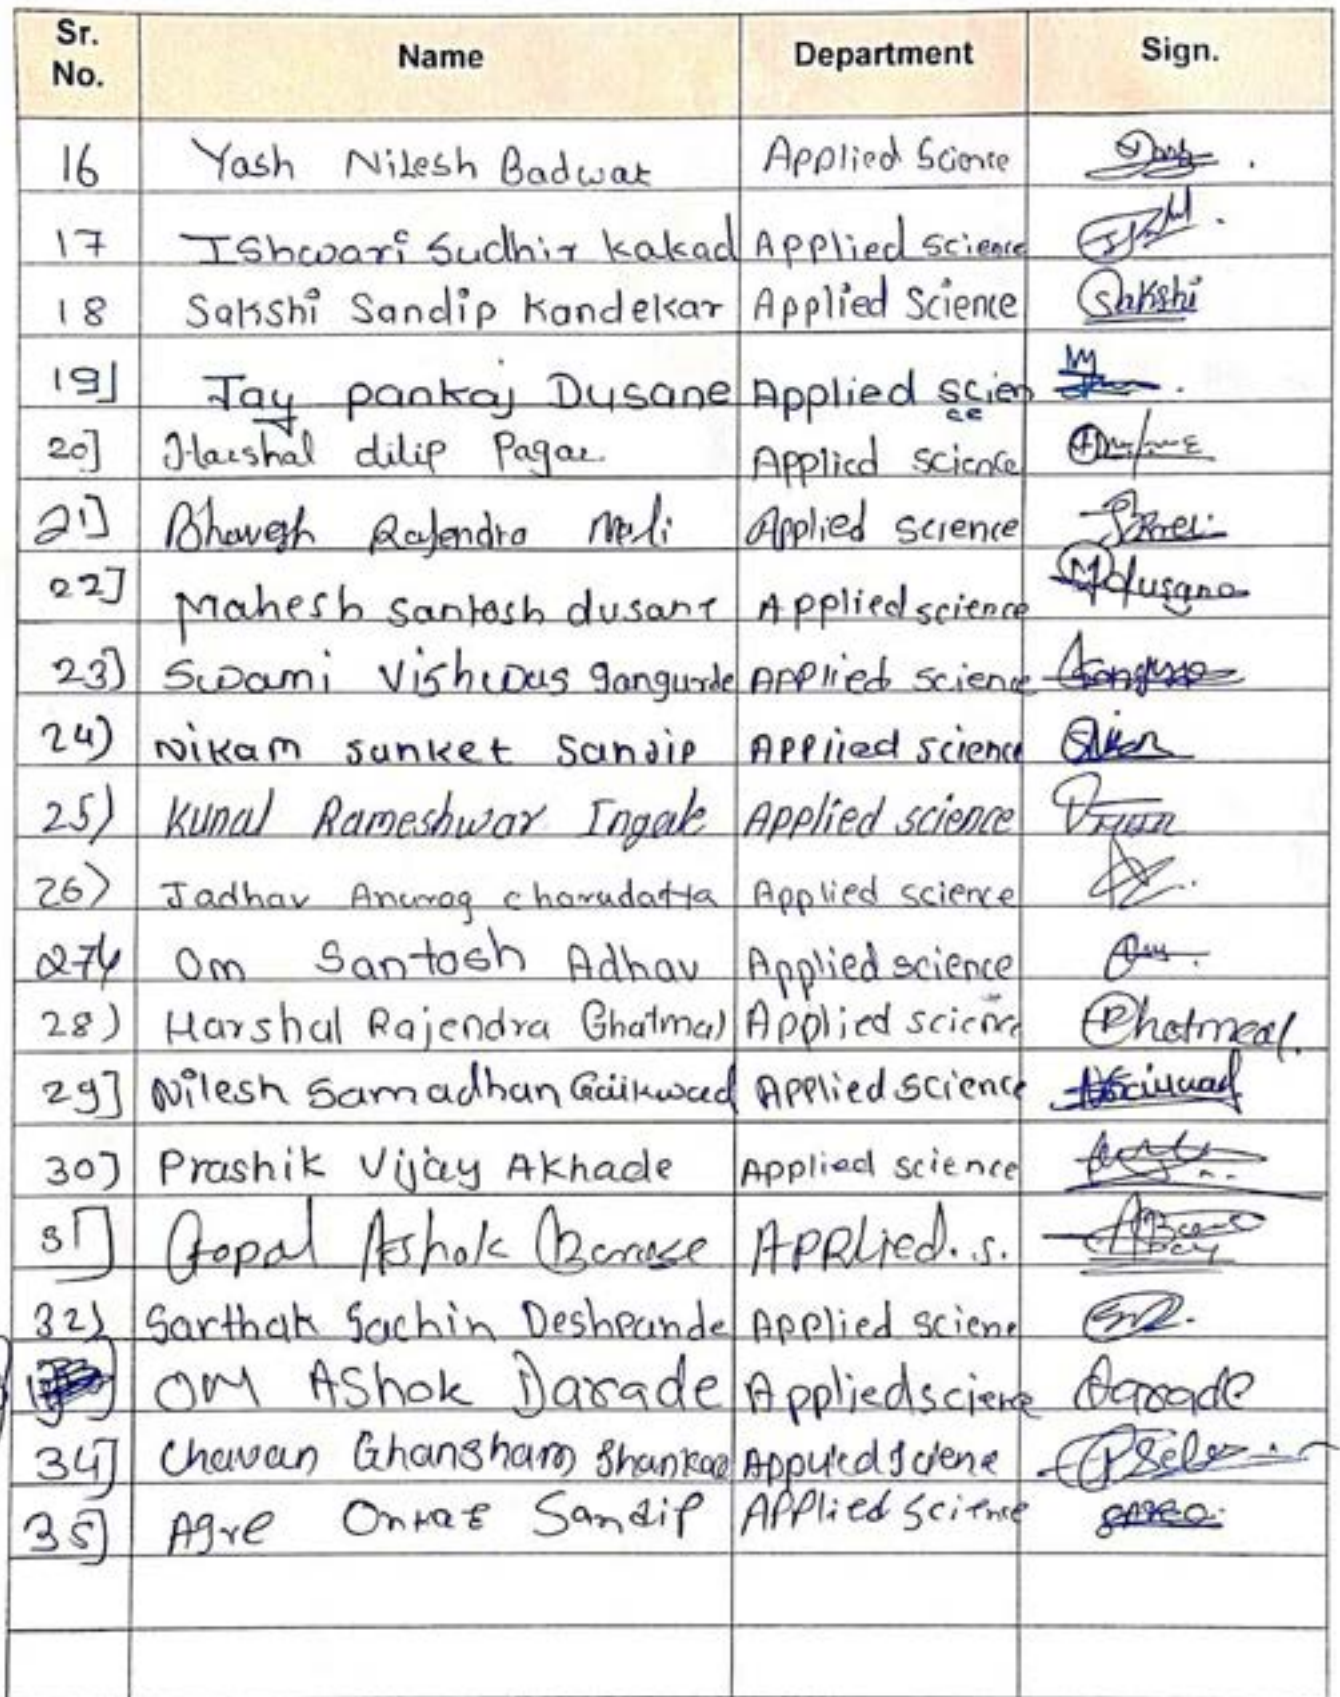 Sr. No. Name Department Sign.
16 Yash Nilesh Badwar Applied Science
17 Ishwari Sudhir kakad Applied science
18 Sakshi Sandip Kandekar Applied Science Sakshi
19] Jay pankaj Dusane Applied scien
ce
20] Harshal dilip Pagar Applied science
21] Bhavesh Rajendra Mali Applied science
22] Mahesh santosh dusane Applied science Mdusane
23) Swami Vishwas gangurde Applied science
24) Nikam sanket Sandip Applied science
25) Kunal Rameshwar Ingale Applied science
26) Jadhav Anurag charudatta Applied science
27) Om Santosh Adhav Applied science
28) Harshal Rajendra Ghatmal Applied science Ghatmal.
29] Nilesh Samadhan Gaikwad Applied science
30] Prashik Vijay Akhade Applied science
31] Gopal Ashok Applied. s.
32) Sarthak Sachin Deshpande Applied scienc
OM Ashok Darade Applied science Darade
34] Chavan Ghansham Shankar Applied Science
35] Agre Onkar Sandip Applied Science